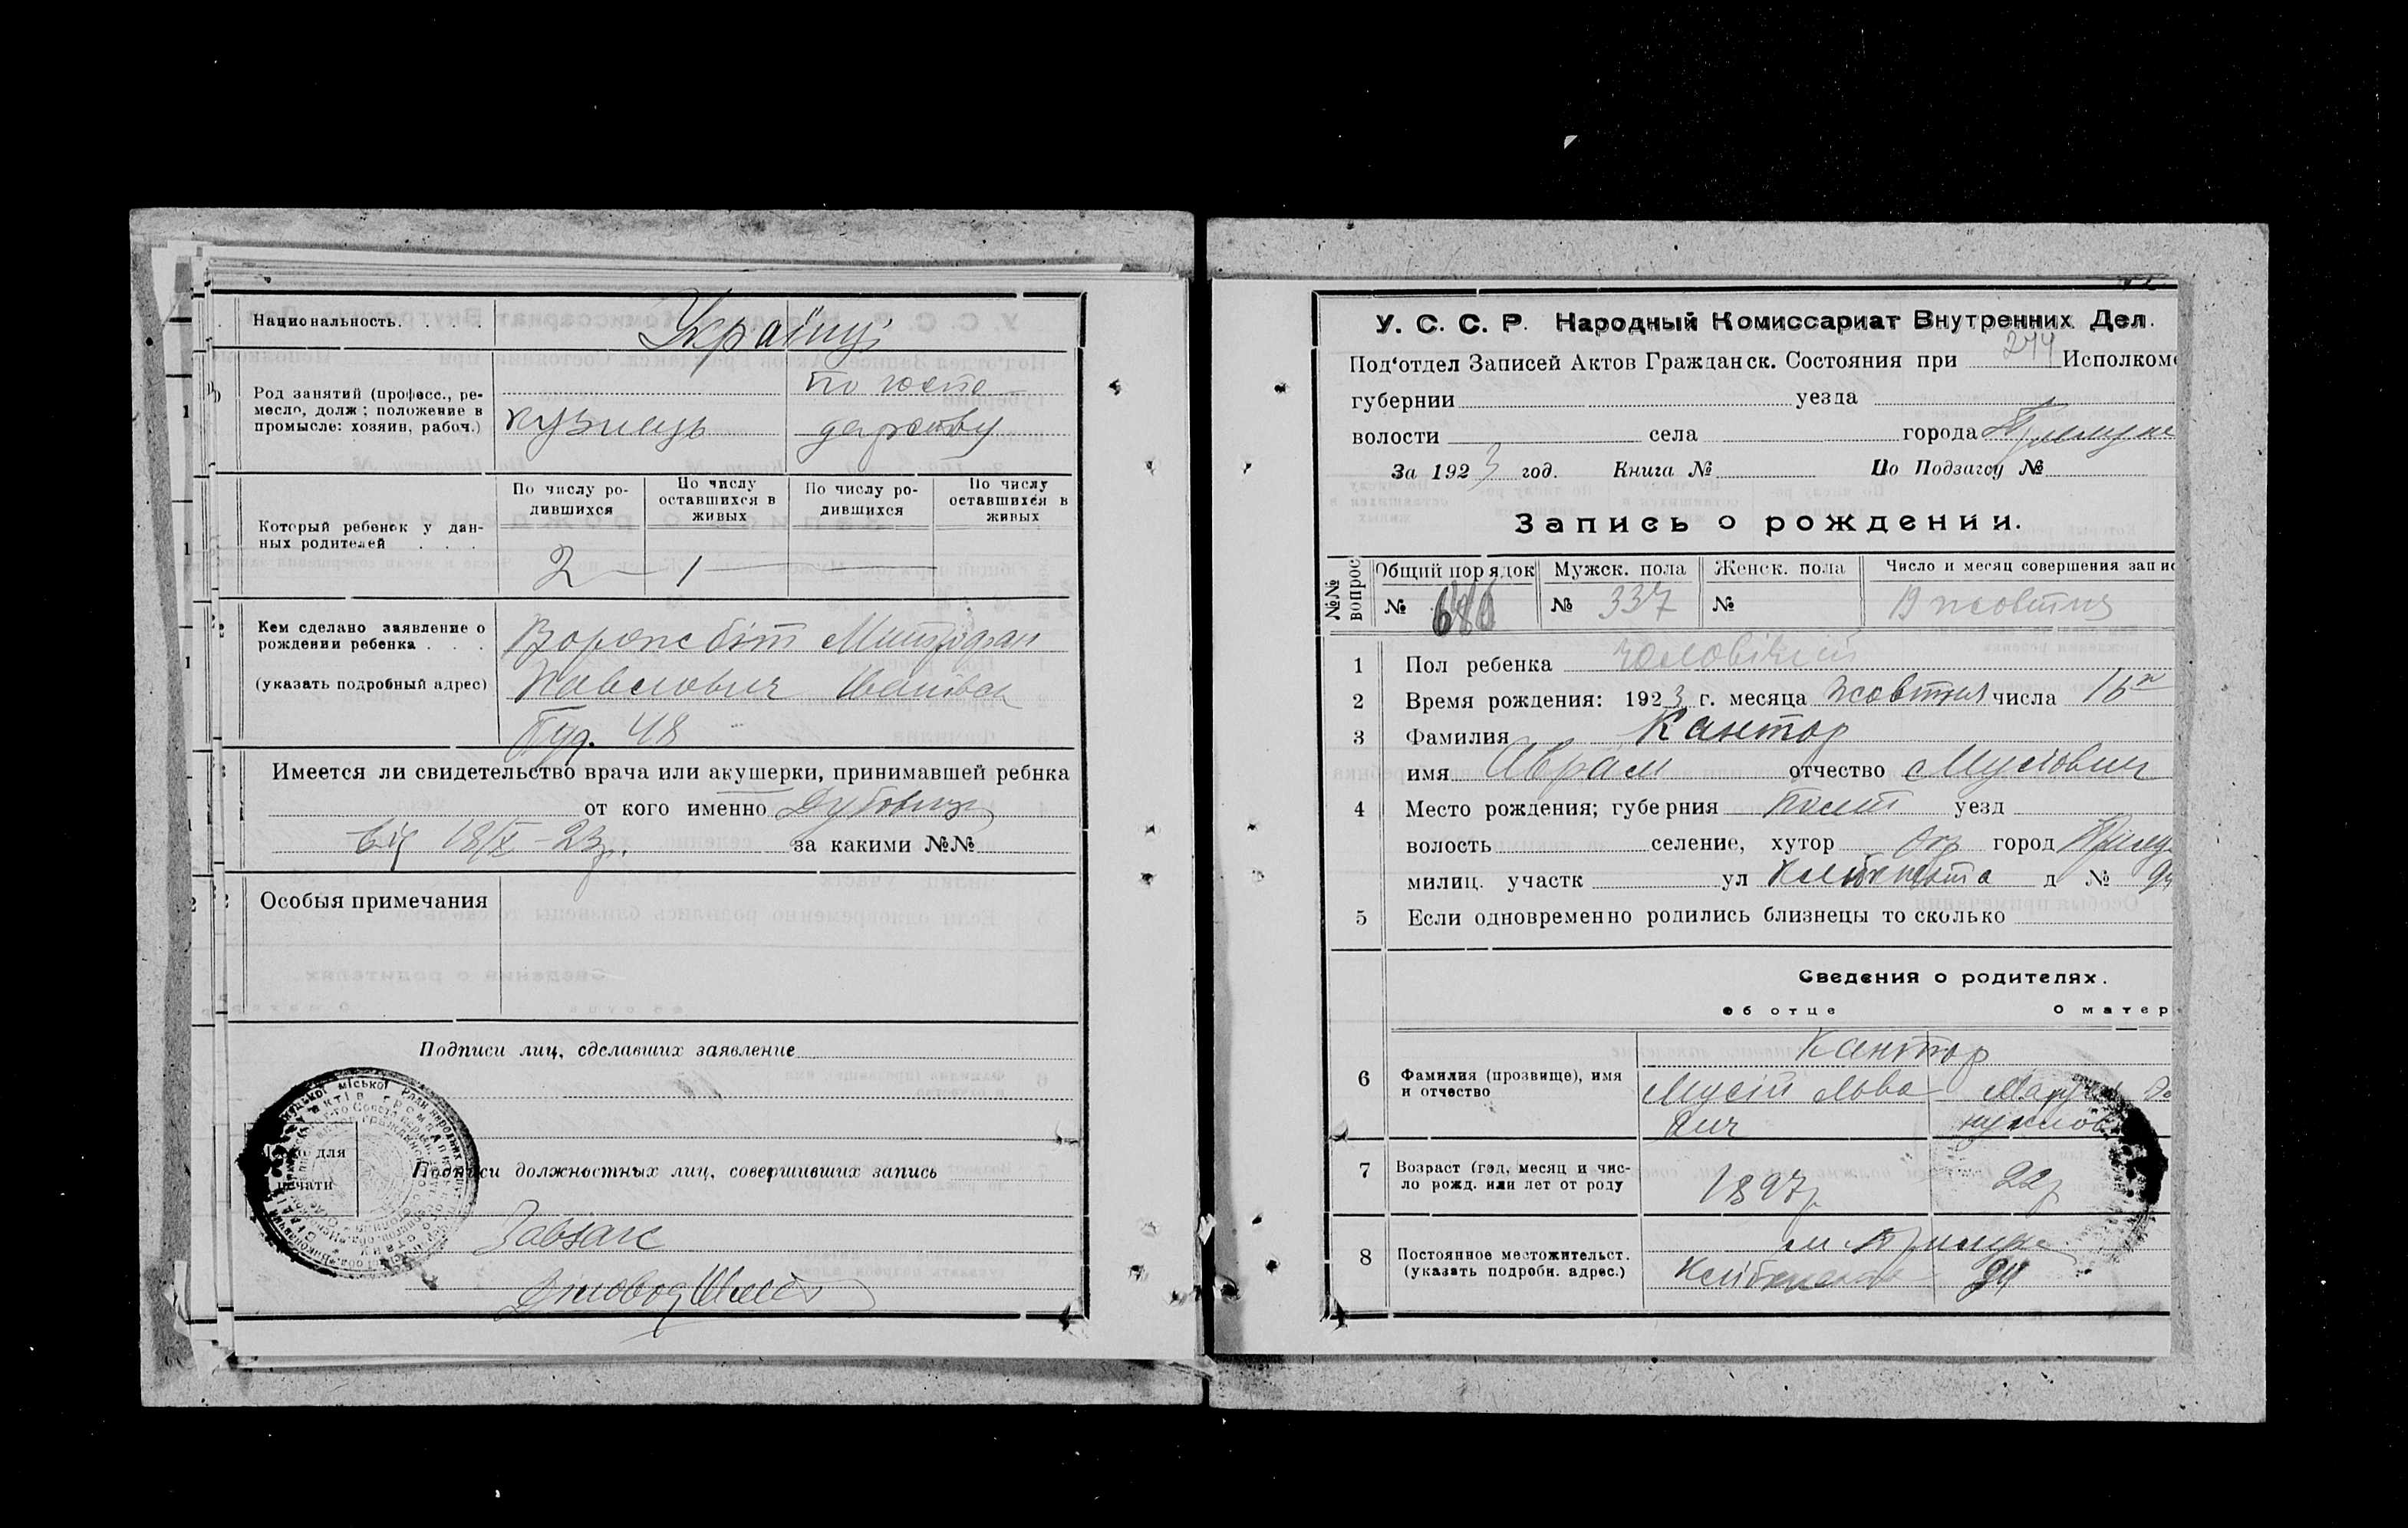 Национальность. . . . .
Українці
Род занятий (професс., ре-
месло, долж; положение в
промысле: хозяин, рабоч.)
кузнець
по госпо-
дарству
Который ребенок у дан-
ных родителей . . . .
По числу ро-
дившихся
По числу
оставшихся в
живых
По числу ро-
дившихся
По числу
оставшихся в
живых
2 — 1
Кем сделано заявление о
рождении ребенка . . .
(указать подробный адрес)
Ворожбіт Митрофан
Павлович
Буд. 48
Имеется ли свидетельство врача или акушерки, принимавшей ребнка
от кого именно
від 18/X – 23р. за какими №№
Особыя примечания
Подписи лиц, сделавших заявление
для
печати
Подписи должностных лиц, совершивших запись
Завзагс
Діловод
У. С. С. Р. Народный Комиссариат Внутренних Дел.
Под‘отдел Записей Актов Гражданск. Состояния при Исполкоме
губернии уезда
волости села города Прилуки
За 1923 год. Книга № По Подзагсу №
Запись о рождении.
№№ вопрос
Общий порядок
№ 686
Мужск. пола
№ 337
Женск. пола
№
Число и месяц совершения запис
19 жовтня
1 Пол ребенка чоловічий
2 Время рождения: 1923 г. месяца жовтня числа 16
3 Фамилия Кантор
имя Аврам отчество Мусіович
4 Место рождения; губерния Полт уезд
волость селение, хутор город Прилу
милиц. участк ул д №
5 Если одновременно родились близнецы то сколько
Сведения о родителях.
об отце О матер
6 Фамилия (прозвище), имя
и отчество
Кантор
Мусій Льво-
вич
7 Возраст (год, месяц и чис-
ло рожд. или лет от роду
1897р
22р
8 Постоянное местожительст.
(указать подробн. адрес.)
м Прилуки
94